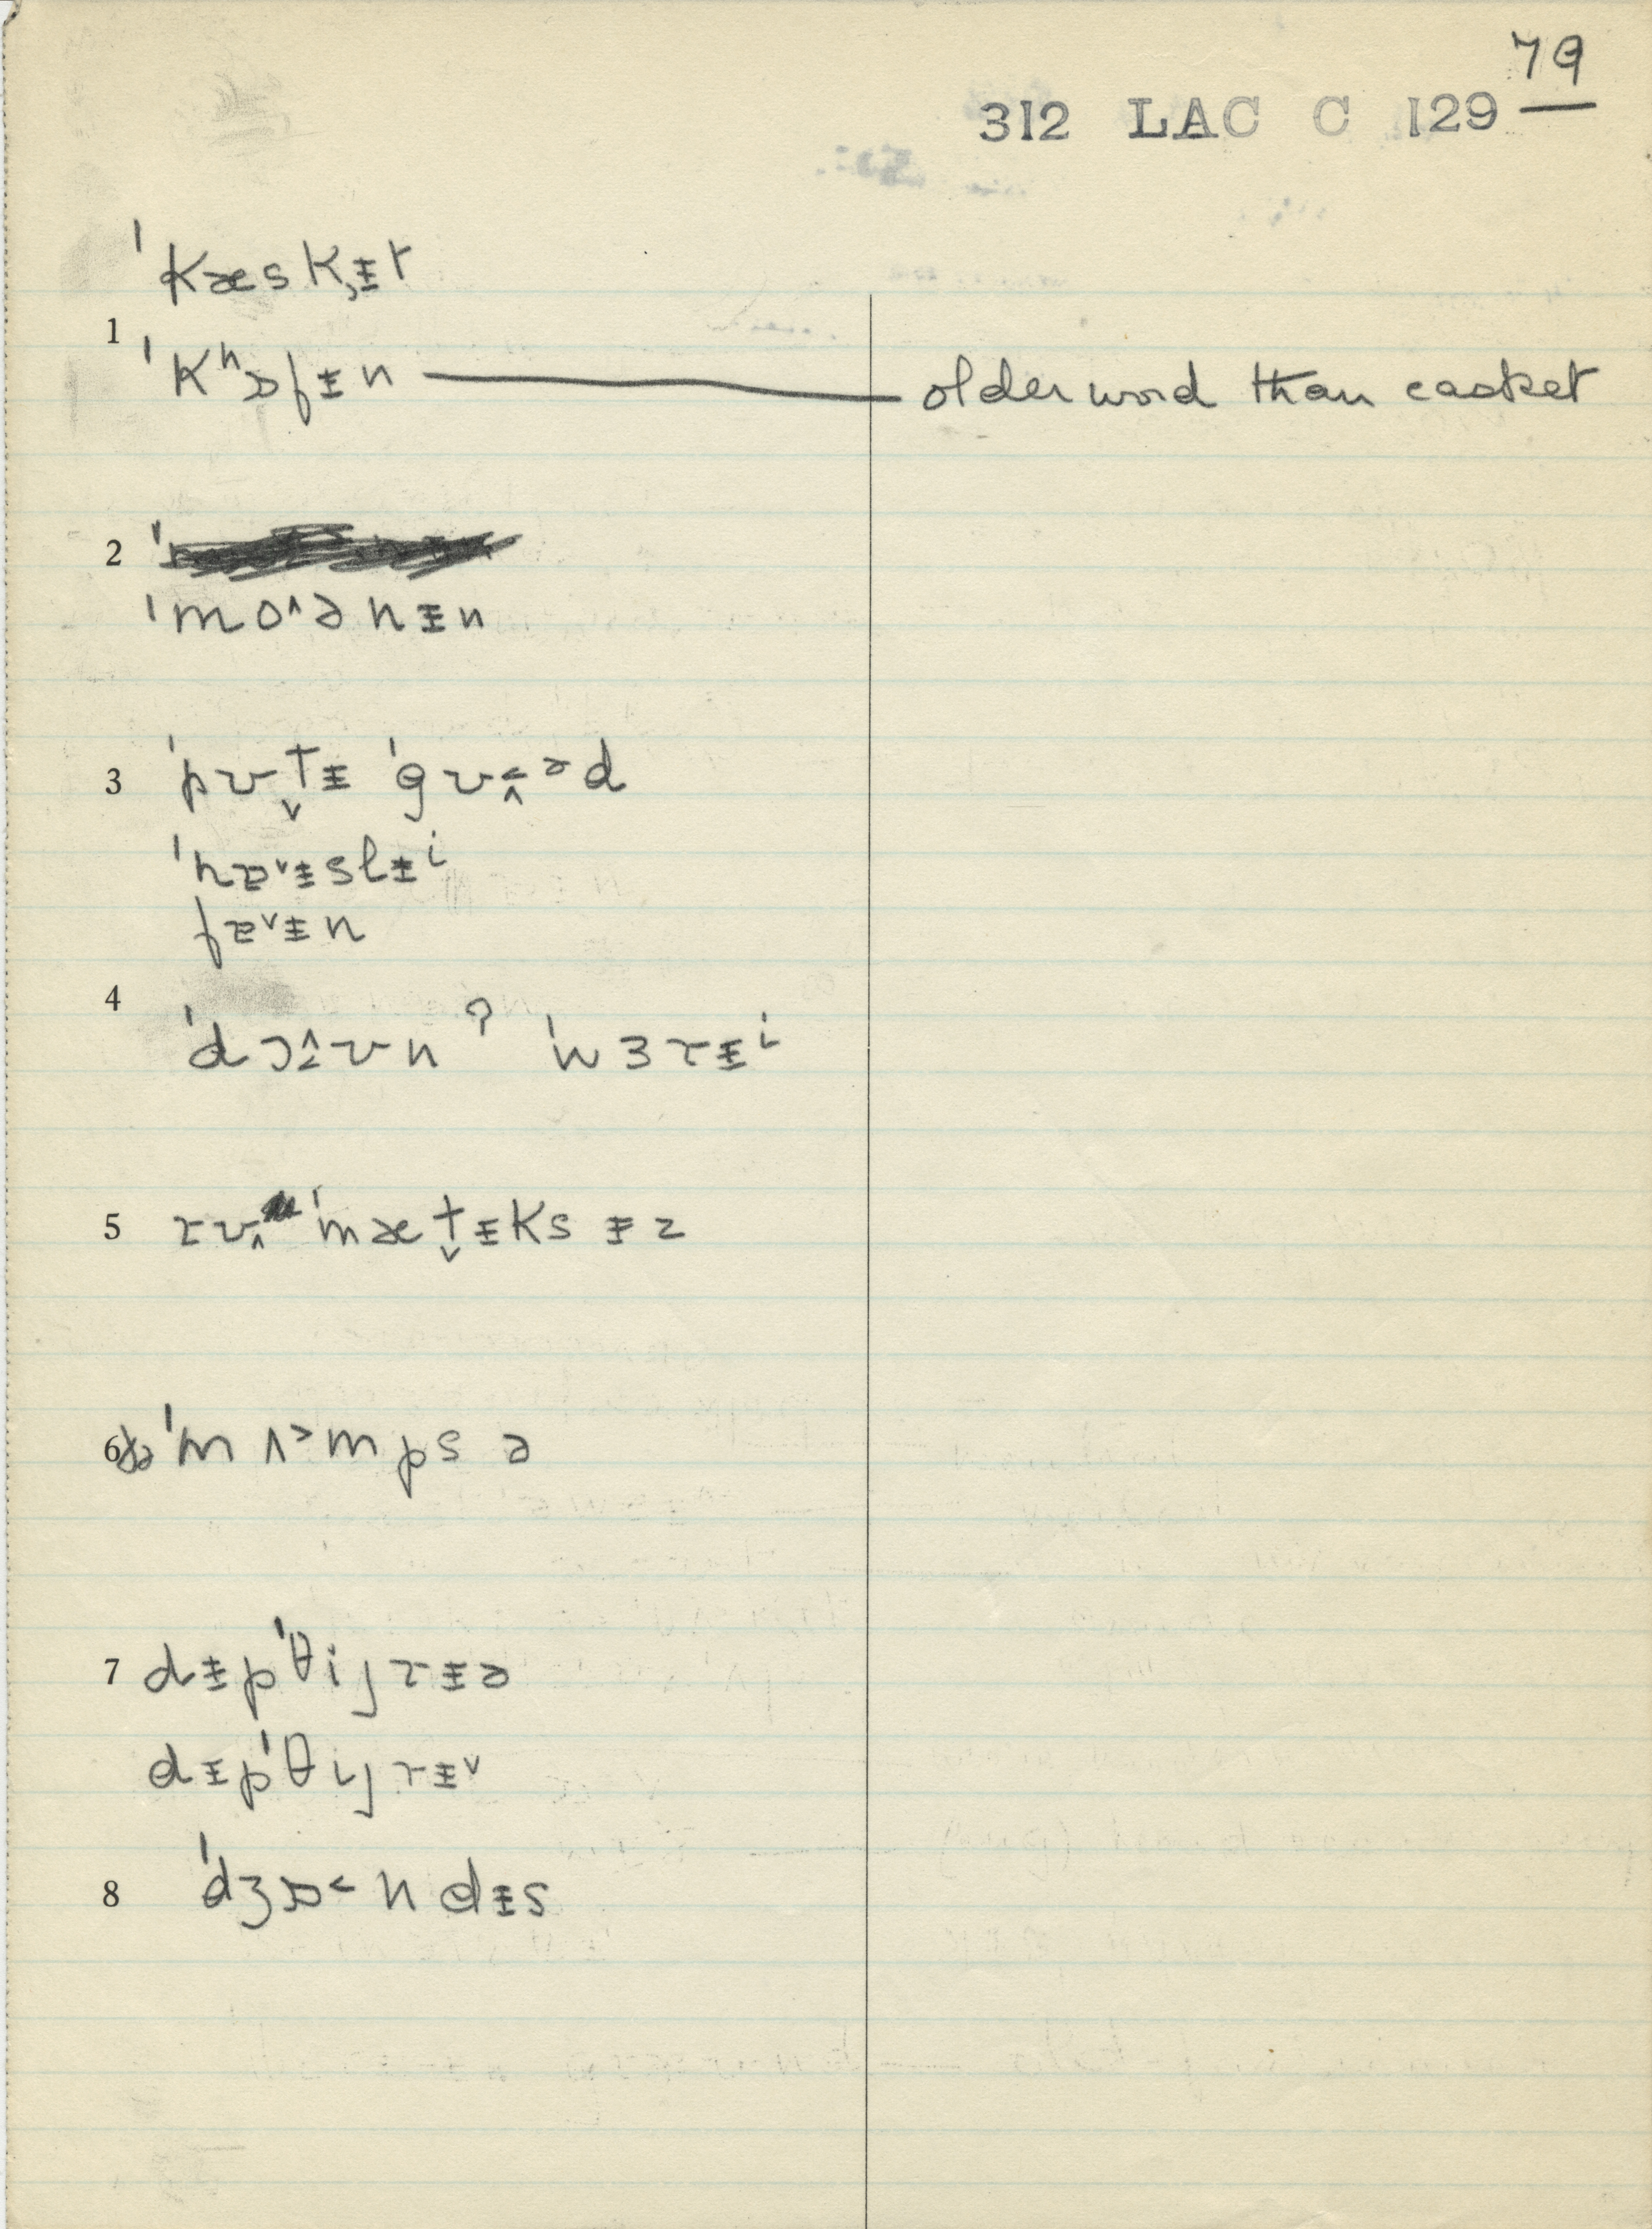 79
312 LAC C 129
ˈkæsk̡ɨt
1
ˈkʰɒfɨn — older word than casket
2
ˈmo^ənɨn
3 ˈpʊt̬ɨ ˈgʊ˂ᵊd
ˈhɐ˅ɨslɨⁱ
fɐ˅ɨn
4
ˈdɔ^ʊn ? ˈwɜrɨⁱ
5 rʊ ˈmæt̬ɨksɨz
6 ðə ˈmʌ˃mpsə
7 dɨpˈθijrɨə
dɨpˈθijrɨ˅
8 ˈdʒɒ˂ndɨs